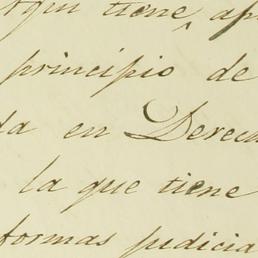 aqui tiene ap
principio de
da en Derech
la que tiene
formas judicia